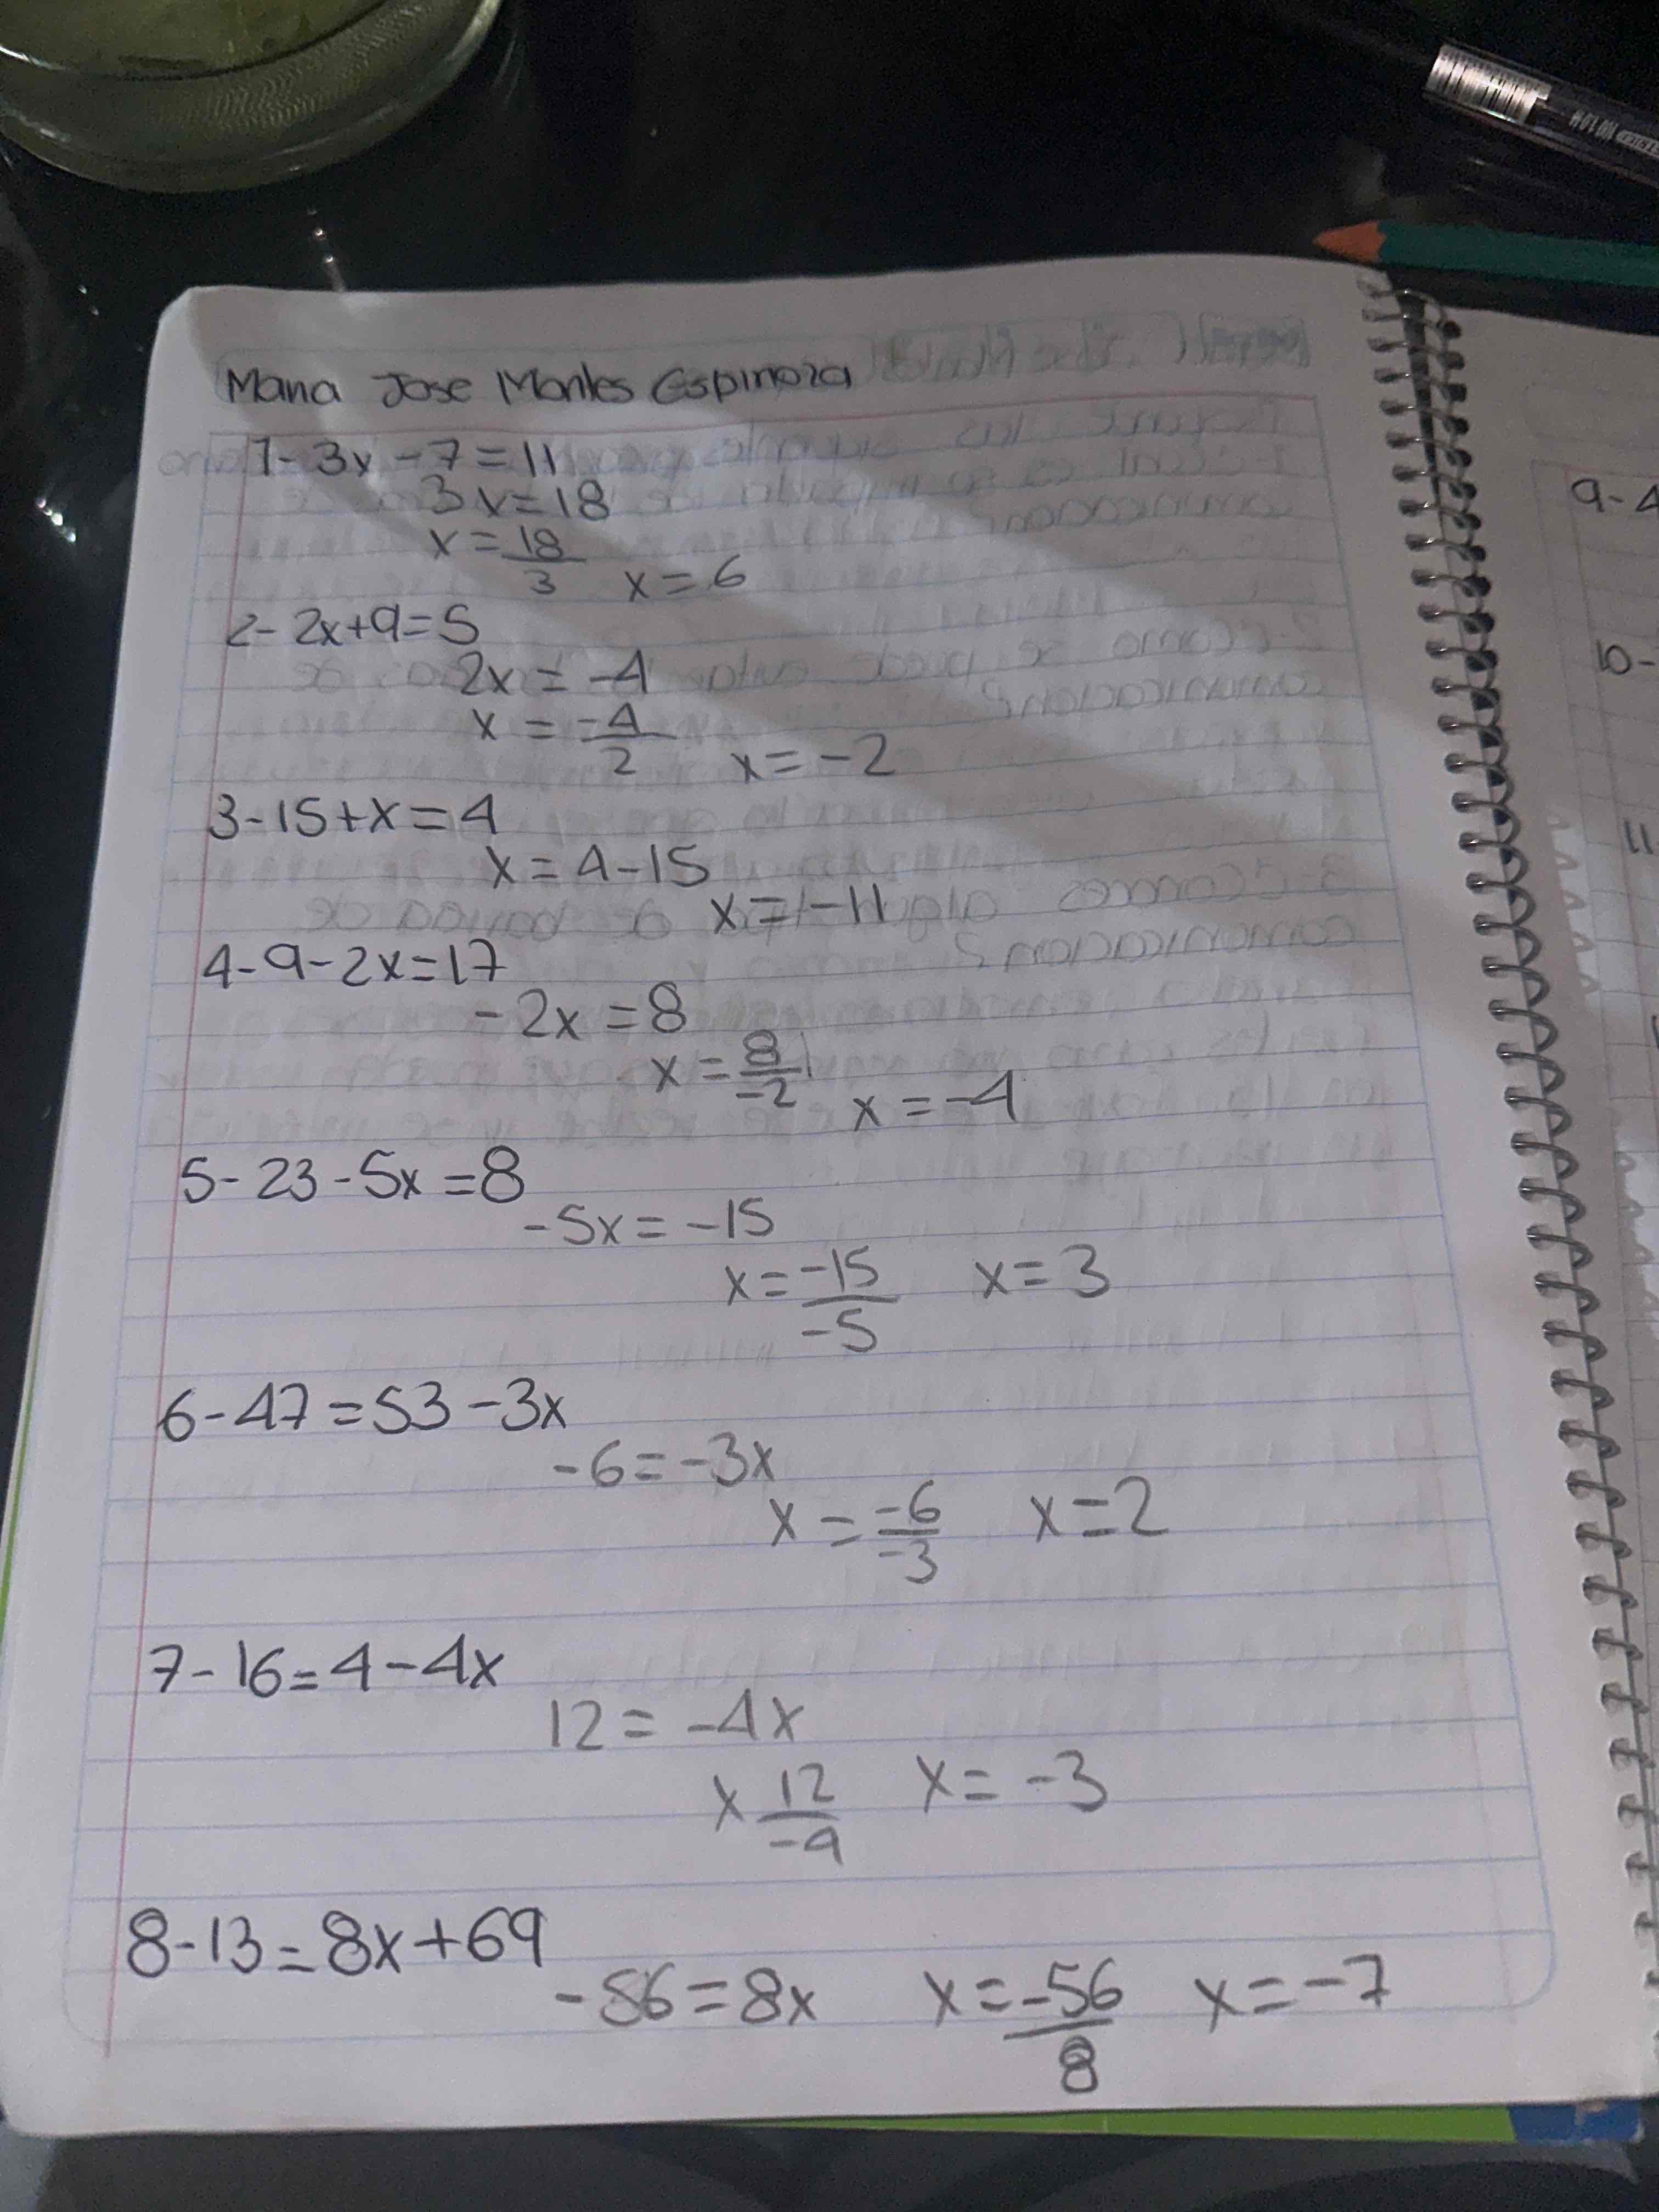 Maria Jose Montes Espinoza
1- 3x - 7 = 11
3x = 18
x = 18/3 x = 6
2- 2x+9=5
2x = -4
x = -4/2 x = -2
3- 15+x=4
x = 4-15
x = -11
4- 9-2x=17
-2x = 8
x = 8/-2 x = -4
5- 23-5x=8
-5x = -15
x = -15/-5 x = 3
6- 47=53-3x
-6=-3x
x = -6/-3 x=2
7- 16=4-4x
12 = -4x
x 12/-4 x = -3
8- 13=8x+69
-56=8x x=-56/8 x=-7
9- 4
10-
11